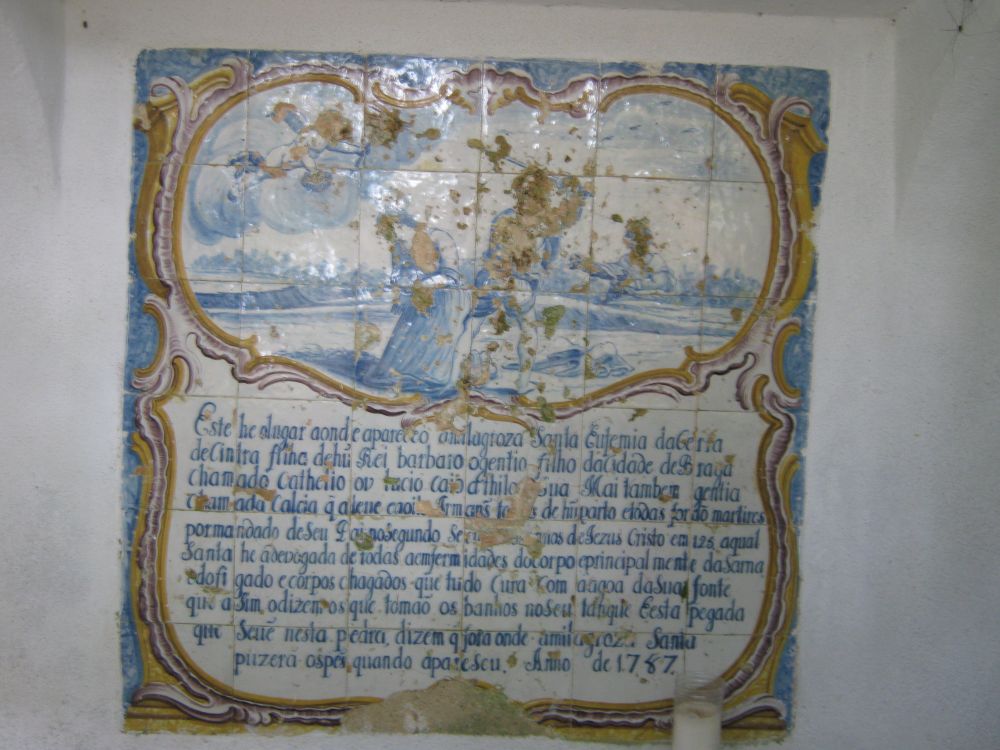 Este he olugar aonde apareceo amilagroza Santa Eufemia daCerra
deCintra filha dehũ Rei barbaro ogentio filho daCidade de Braga
chamado Cathelio ou Lucio caio Sua Mai tambem gentia
chamada Calcia q̃ de hũ parto etodas foraõ martires
por mandado deSeu Pai noSegundo de Iezus Cristo em 125 aqual
Santa he ãdevogada de todas aemfermidades docorpo eprincipal mente daSarna
edofigado ecorpos chagados que tudo Cura Com aagoa daSua fonte
que aSim odizem os que tomaõ os banhos noSeu tanque Eesta pegada
que Seuê nesta pedra, dizem q̃ fora onde amilagroza Santa
puzera ospés quando apareseu. Anno de 1787